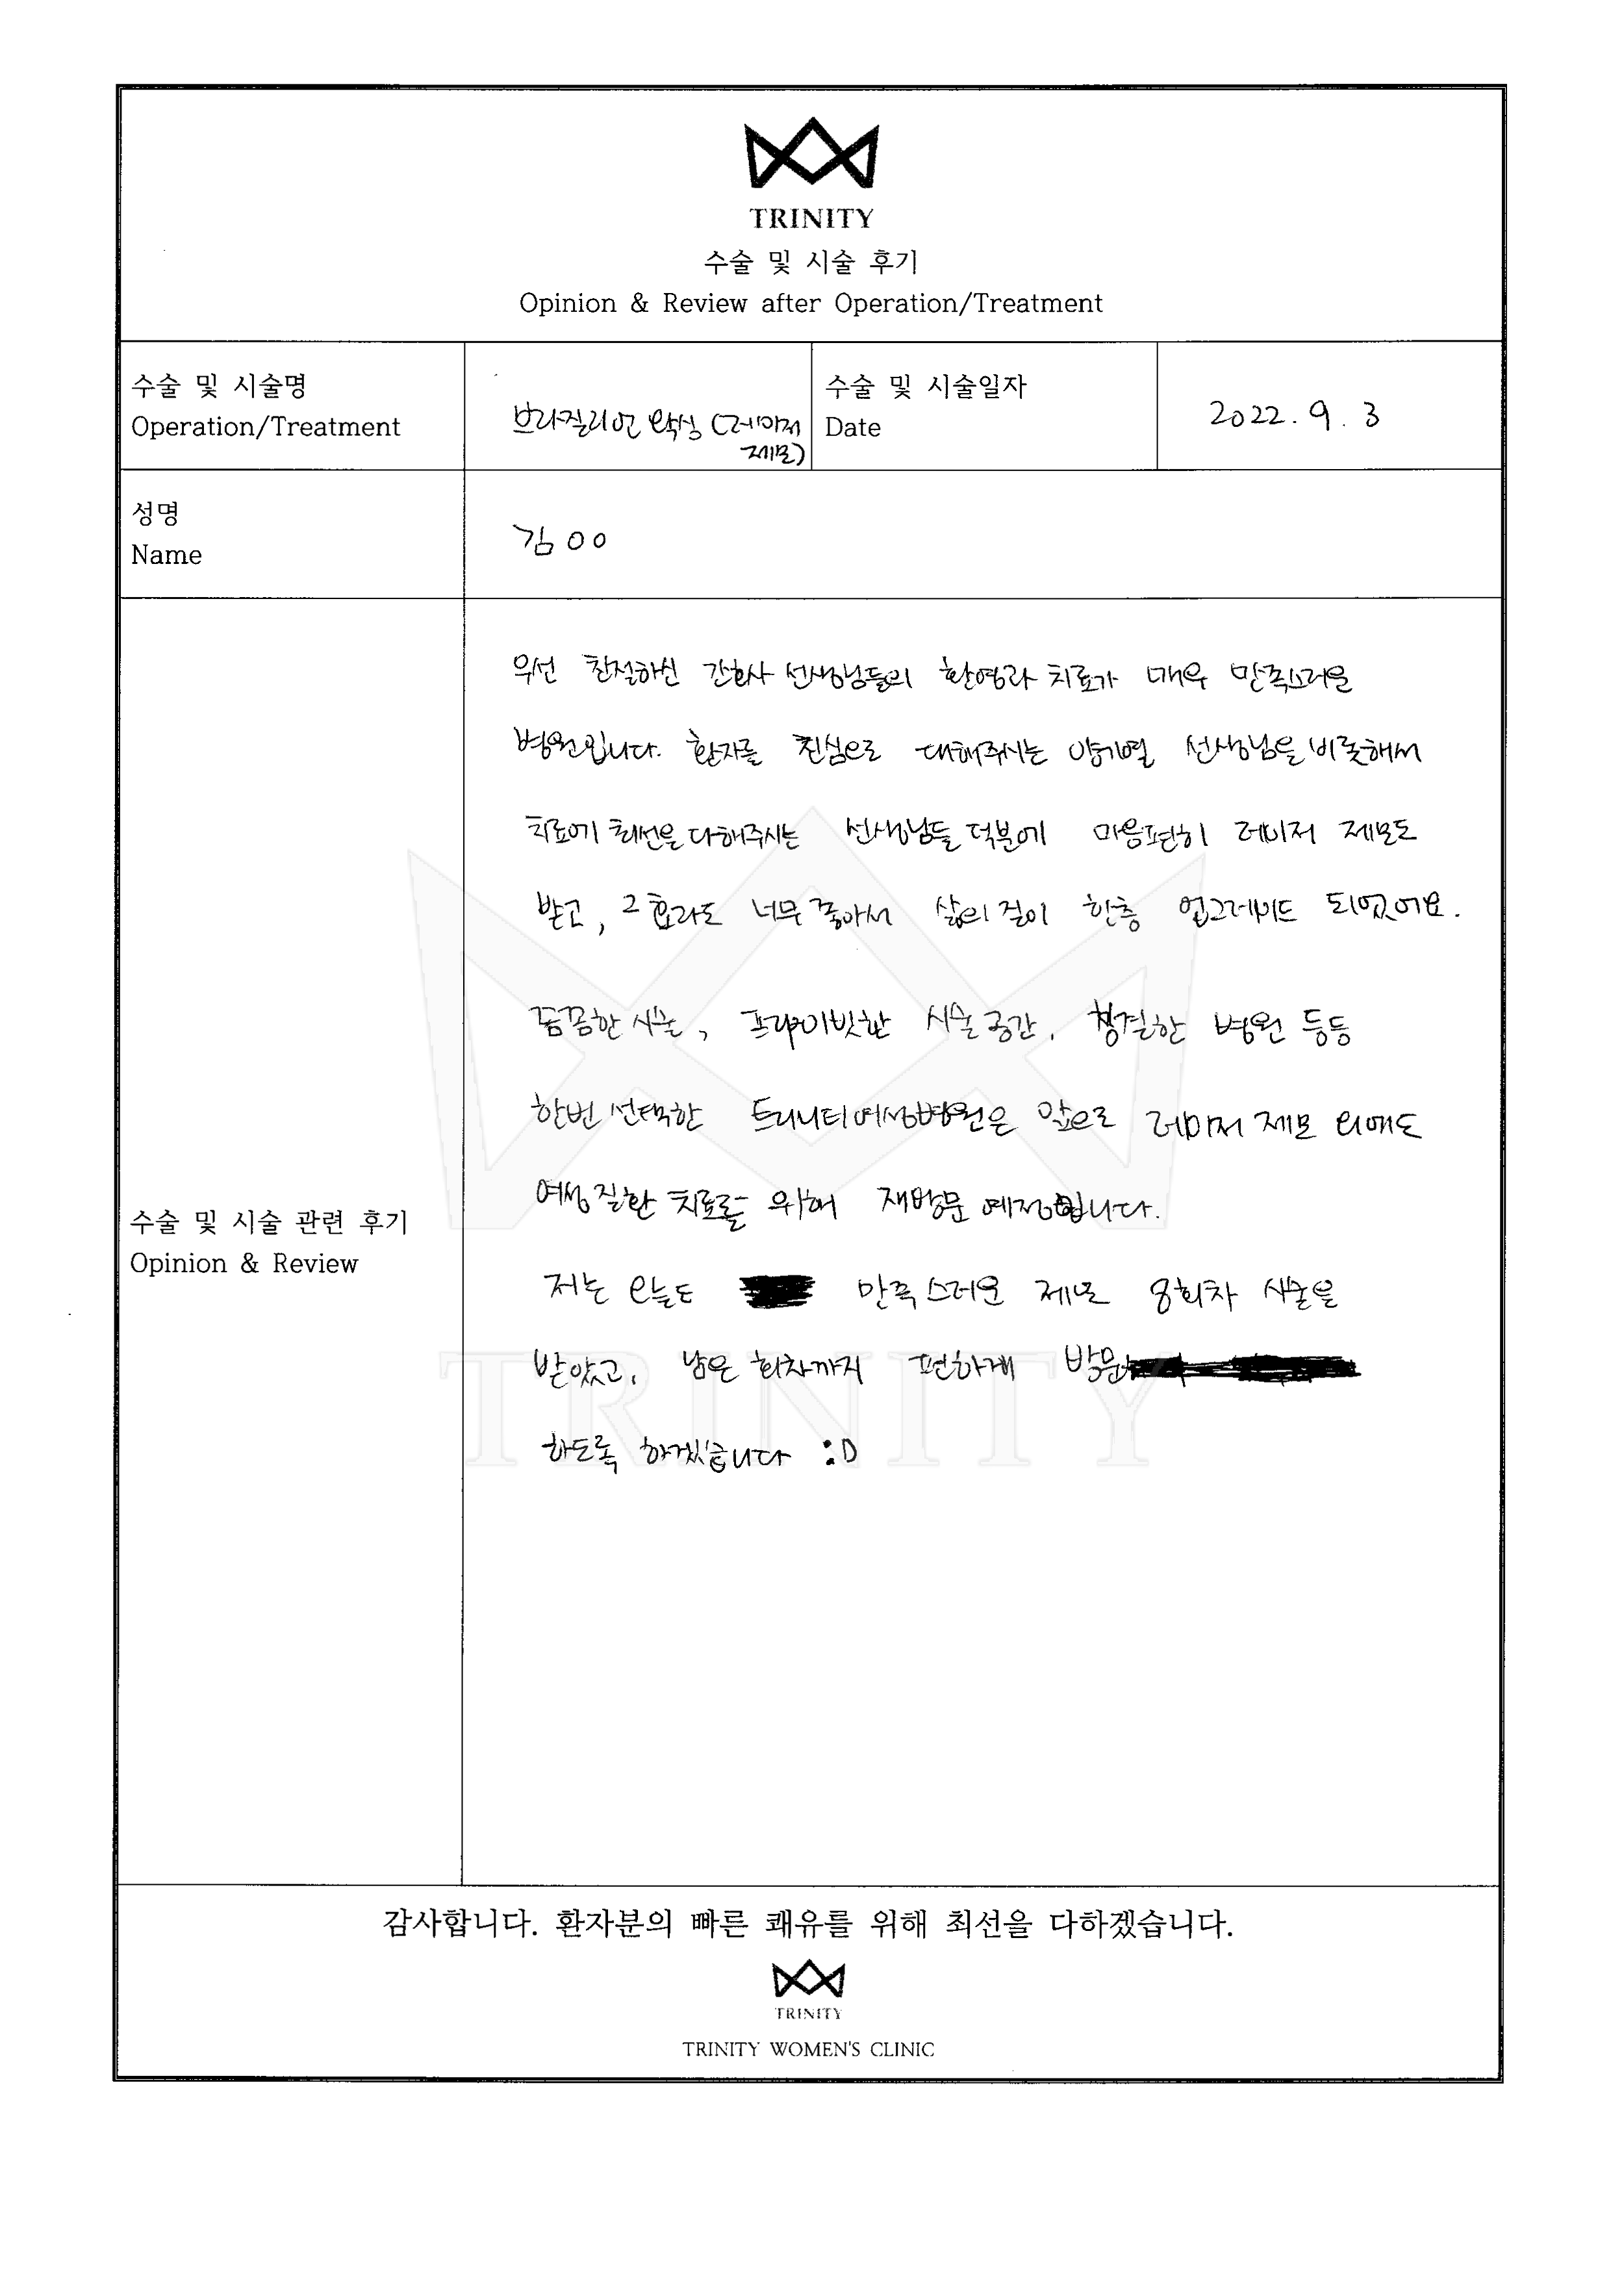 TRINITY
수술 및 시술 후기
Opinion & Review after Operation/Treatment
수술 및 시술명
Operation/Treatment
브라질리언 왁싱 (레이저
제모)
수술 및 시술일자
Date
2022. 9. 3
성명
Name
김 O O
수술 및 시술 관련 후기
Opinion & Review
우선 친절하신 간호사 선생님들의 환영과 치료가 매우 만족스러운
병원입니다. 환자를 진심으로 대해주시는 선생님을 비롯해서
치료에 최선을 다해주시는 선생님들 덕분에 마음편히 레이저 제모도
받고, 그 효과도 너무 좋아서 삶의 질이 한층 업그레이드 되었어요.
꼼꼼한 시술, 프라이빗한 시술 공간, 청결한 병원 등등
한번 선택한 트리니티여성병원은 앞으로 레이저 제모 외에도
여성질환 치료를 위해 재방문 예정입니다.
저는 오늘도 만족스러운 제모 8회차 시술을
받았고, 남은 회차까지 편하게 방문
하도록 하겠습니다 :D
TRINITY
감사합니다. 환자분의 빠른 쾌유를 위해 최선을 다하겠습니다.
TRINITY
TRINITY WOMEN'S CLINIC